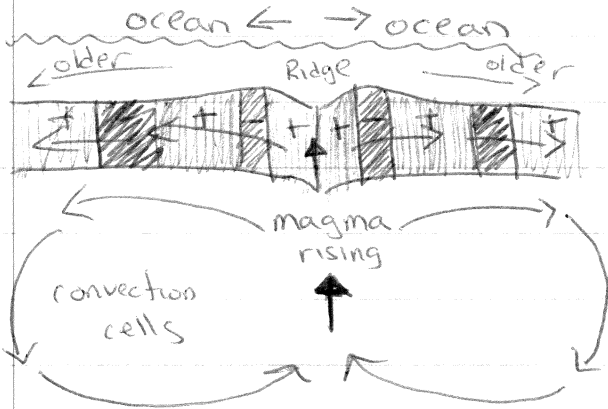 ocean ← → ocean
older Ridge older
+ - + - + + - + - +
magma
rising
convection
cells